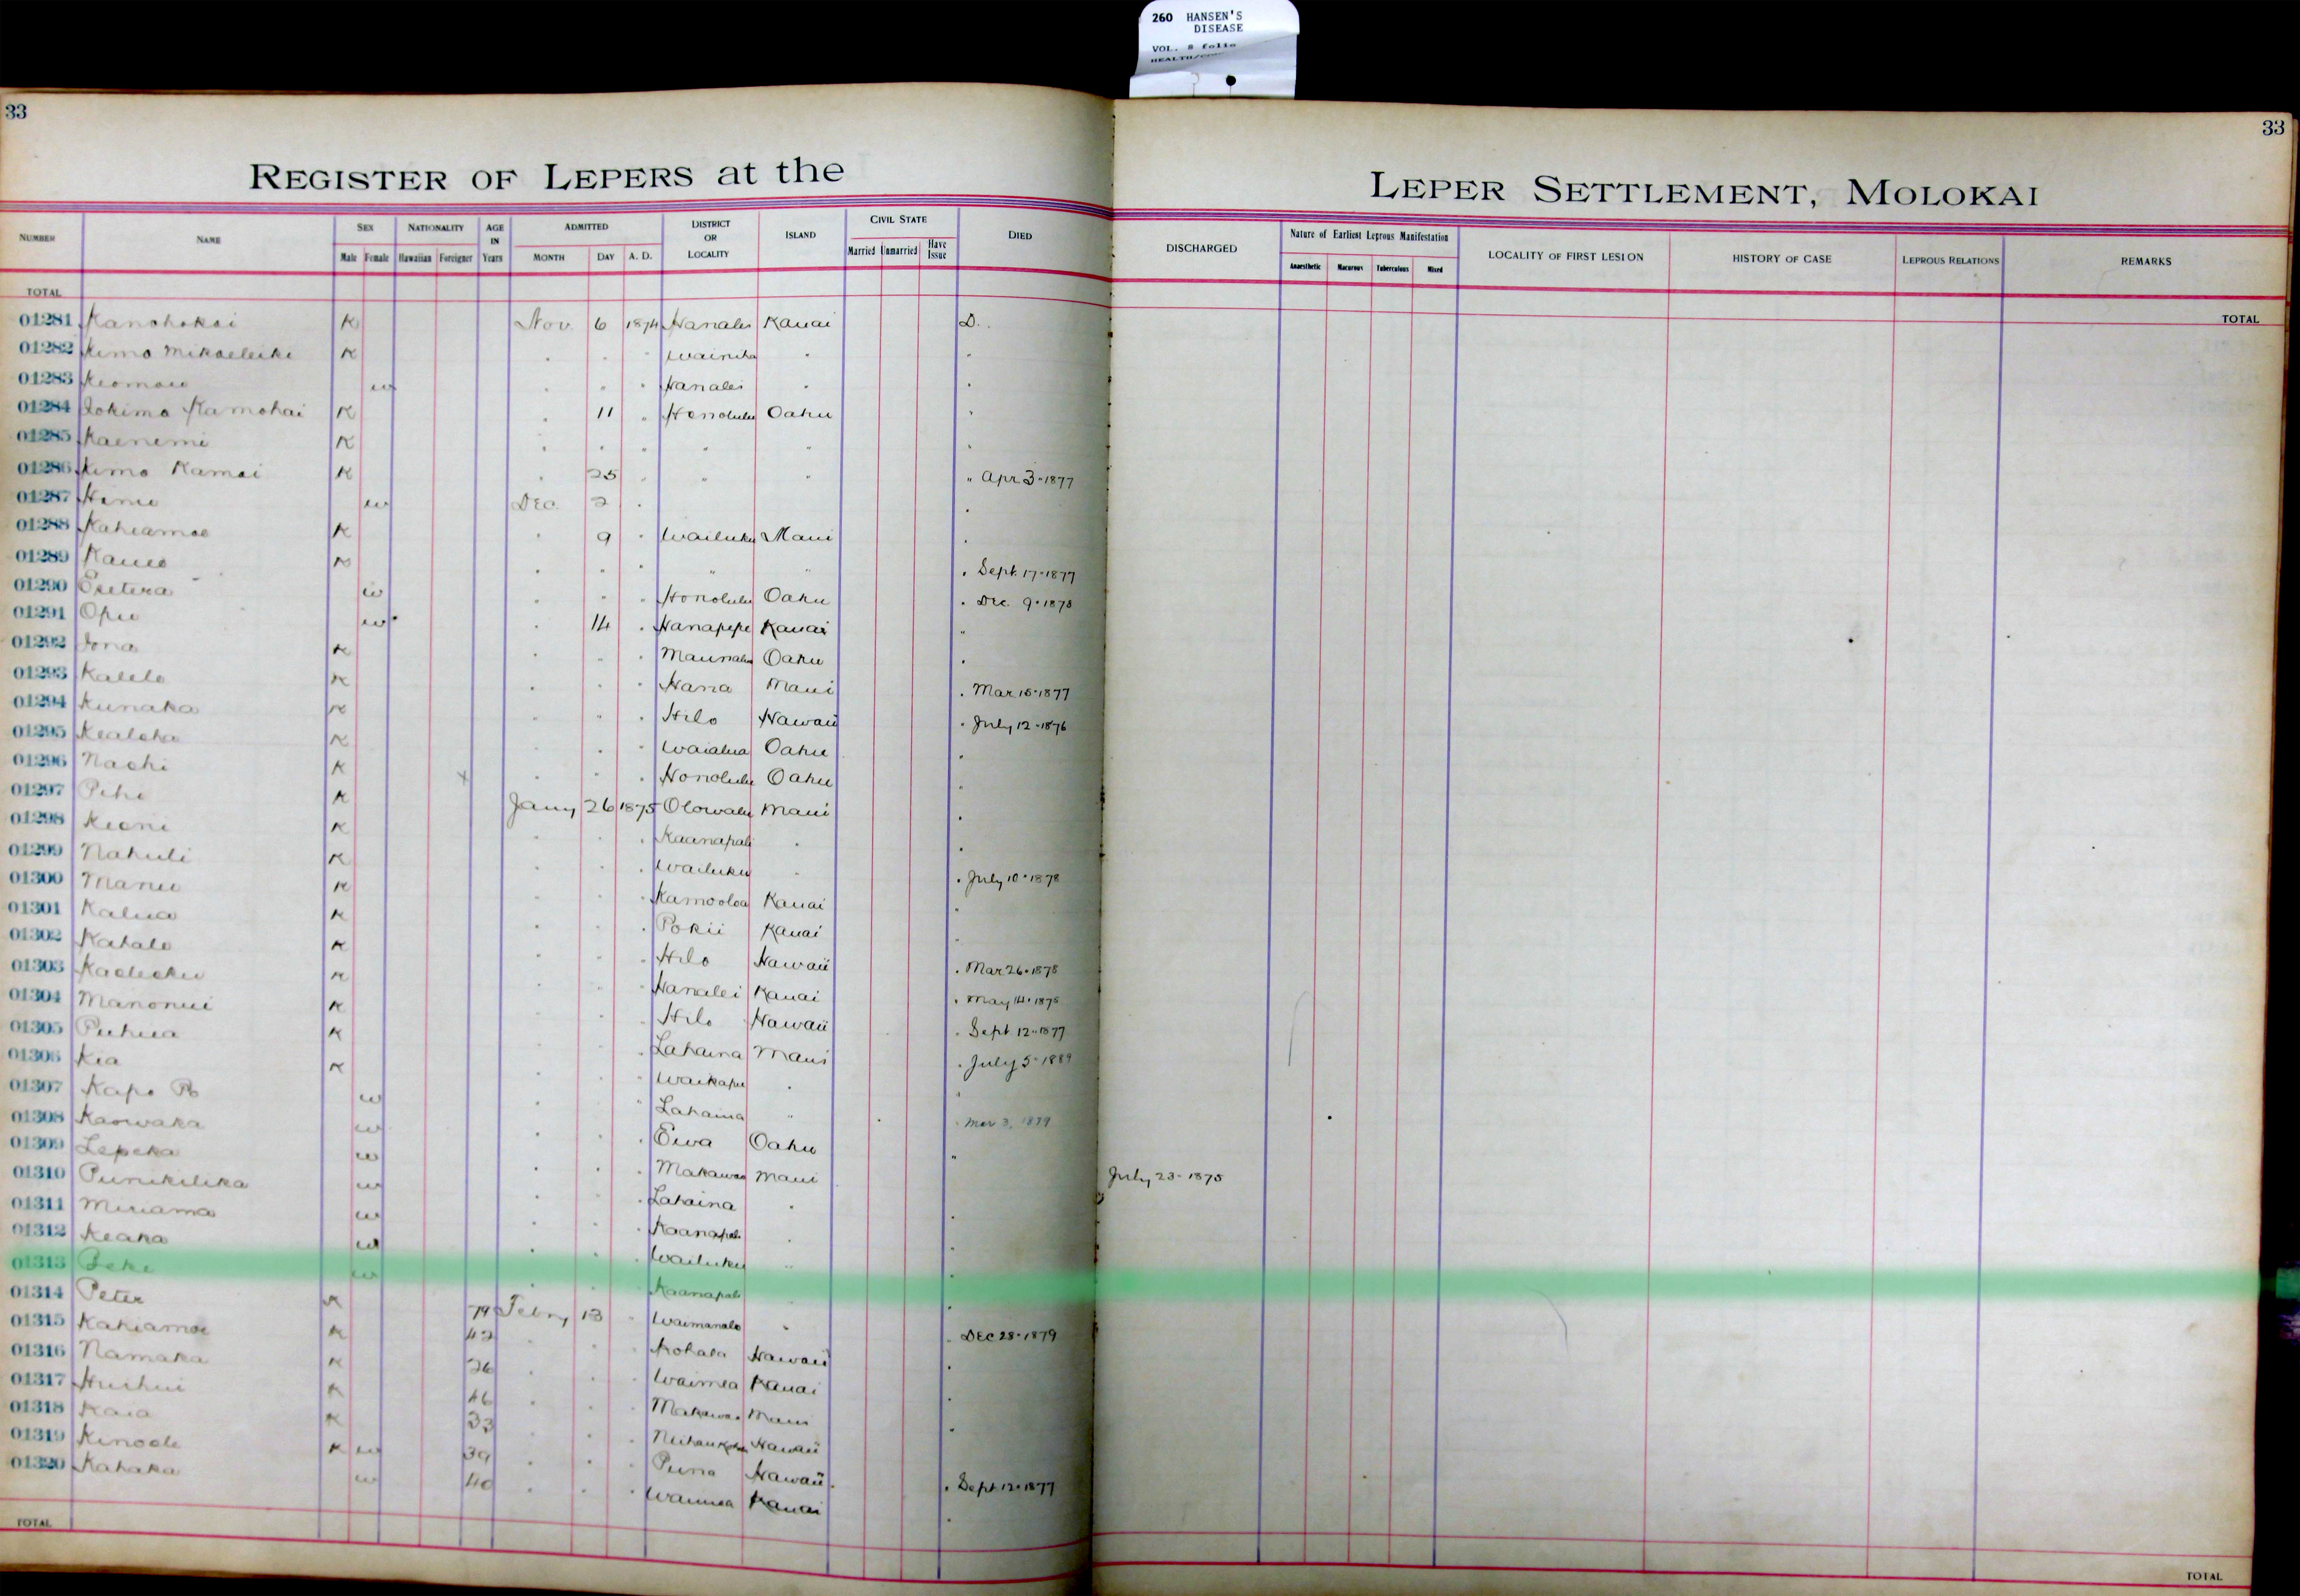 260 HANSEN'S
DISEASE
VOL. 8 folio
33
33
REGISTER OF LEPERS at the LEPER SETTLEMENT, MOLOKAI
NUMBER NAME SEX NATIONALITY AGE IN Years ADMITTED DISTRICT OR LOCALITY ISLAND CIVIL STATE DIED DISCHARGED Nature of Earliest Leprous Manifestation LOCALITY OF FIRST LESION HISTORY OF CASE LEPROUS RELATIONS REMARKS
Male Female Hawaiian Foreigner MONTH DAY A. D. Married Unmarried Have Issue Anaesthetic Macurous Tuberculous Mixed
TOTAL TOTAL
01281 Kanohokai K Nov. 6 1874 Hanalei Kauai D.
01282 Kimo Mikaeleiki K " " " Wainiha " "
01283 w " " " Hanalei " "
01284 Iokimo Kamohai K " 11 " Honolulu Oahu "
01285 Kaenemi K " " " " " "
01286 Kimo Kamai K " 25 " " " " Apr 3-1877
01287 w Dec. 2 " "
01288 Kahiamoe K " 9 " Wailuku Maui "
01289 K " " " " " " Sept. 17-1877
01290 w " " " Honolulu Oahu " Dec. 9-1878
01291 Opu w " 14 " Hanapepe Kauai "
01292 Iona K " " " Maunalua Oahu "
01293 Kalele K " " " Hana Maui " Mar 15-1877
01294 Kunaka K " " " Hilo Hawaii " July 12-1876
01295 Kealoha K " " " Waialua Oahu "
01296 Naohi K x " " " Honolulu Oahu "
01297 Pihi K Jany 26 1875 Olowalu Maui "
01298 Keoni K " " " Kaanapali " "
01299 Nahuli K " " " Wailuku " " July 10-1878
01300 Manu K " " " Kamooloa Kauai "
01301 Kalua K " " " Pokii Kauai "
01302 Kahale K " " " Hilo Hawaii " Mar 26-1878
01303 K " " " Hanalei Kauai " May 14-1875
01304 Manonui K " " " Hilo Hawaii " Sept 12-1877
01305 Puhua K " " " Lahaina Maui " July 5-1889
01306 Kia K " " " Waikapu " "
01307 Kapo w " " " Lahaina " " Mar 3, 1879
01308 Kaowaka w " " " Ewa Oahu "
01309 Lepeka w " " " Makawao Maui July 23-1875
01310 Punikilika w " " " Lahaina " "
01311 Miriama w " " " Kaanapali " "
01312 Keaka w " " " Wailuku " "
01313 Peke w " " " Kaanapali " "
01314 Peter K 79 Febry 13 " Waimanalo " " Dec 28-1879
01315 Kahiamoe K 42 " " " Kohala Hawaii "
01316 Namaka K 26 " " " Waimea Kauai "
01317 Huihui K 46 " " " Makawao Maui "
01318 Kaia K 33 " " " Hawaii
01319 Kinoole K w 39 " " " Puna Hawaii " Sept 12-1877
01320 Kahaka w 40 " " " Waimea Kauai "
TOTAL TOTAL